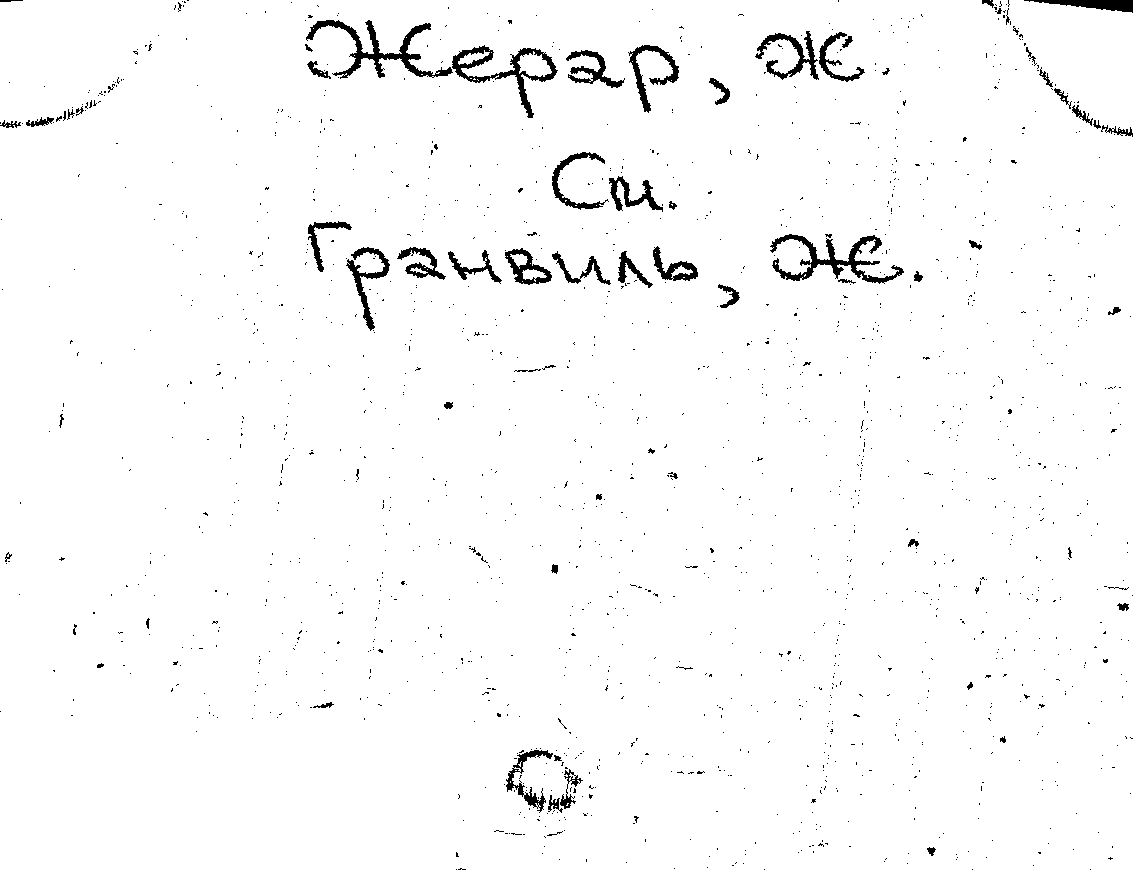 Жерар, Ж.
См.
Гранвиль, Ж.